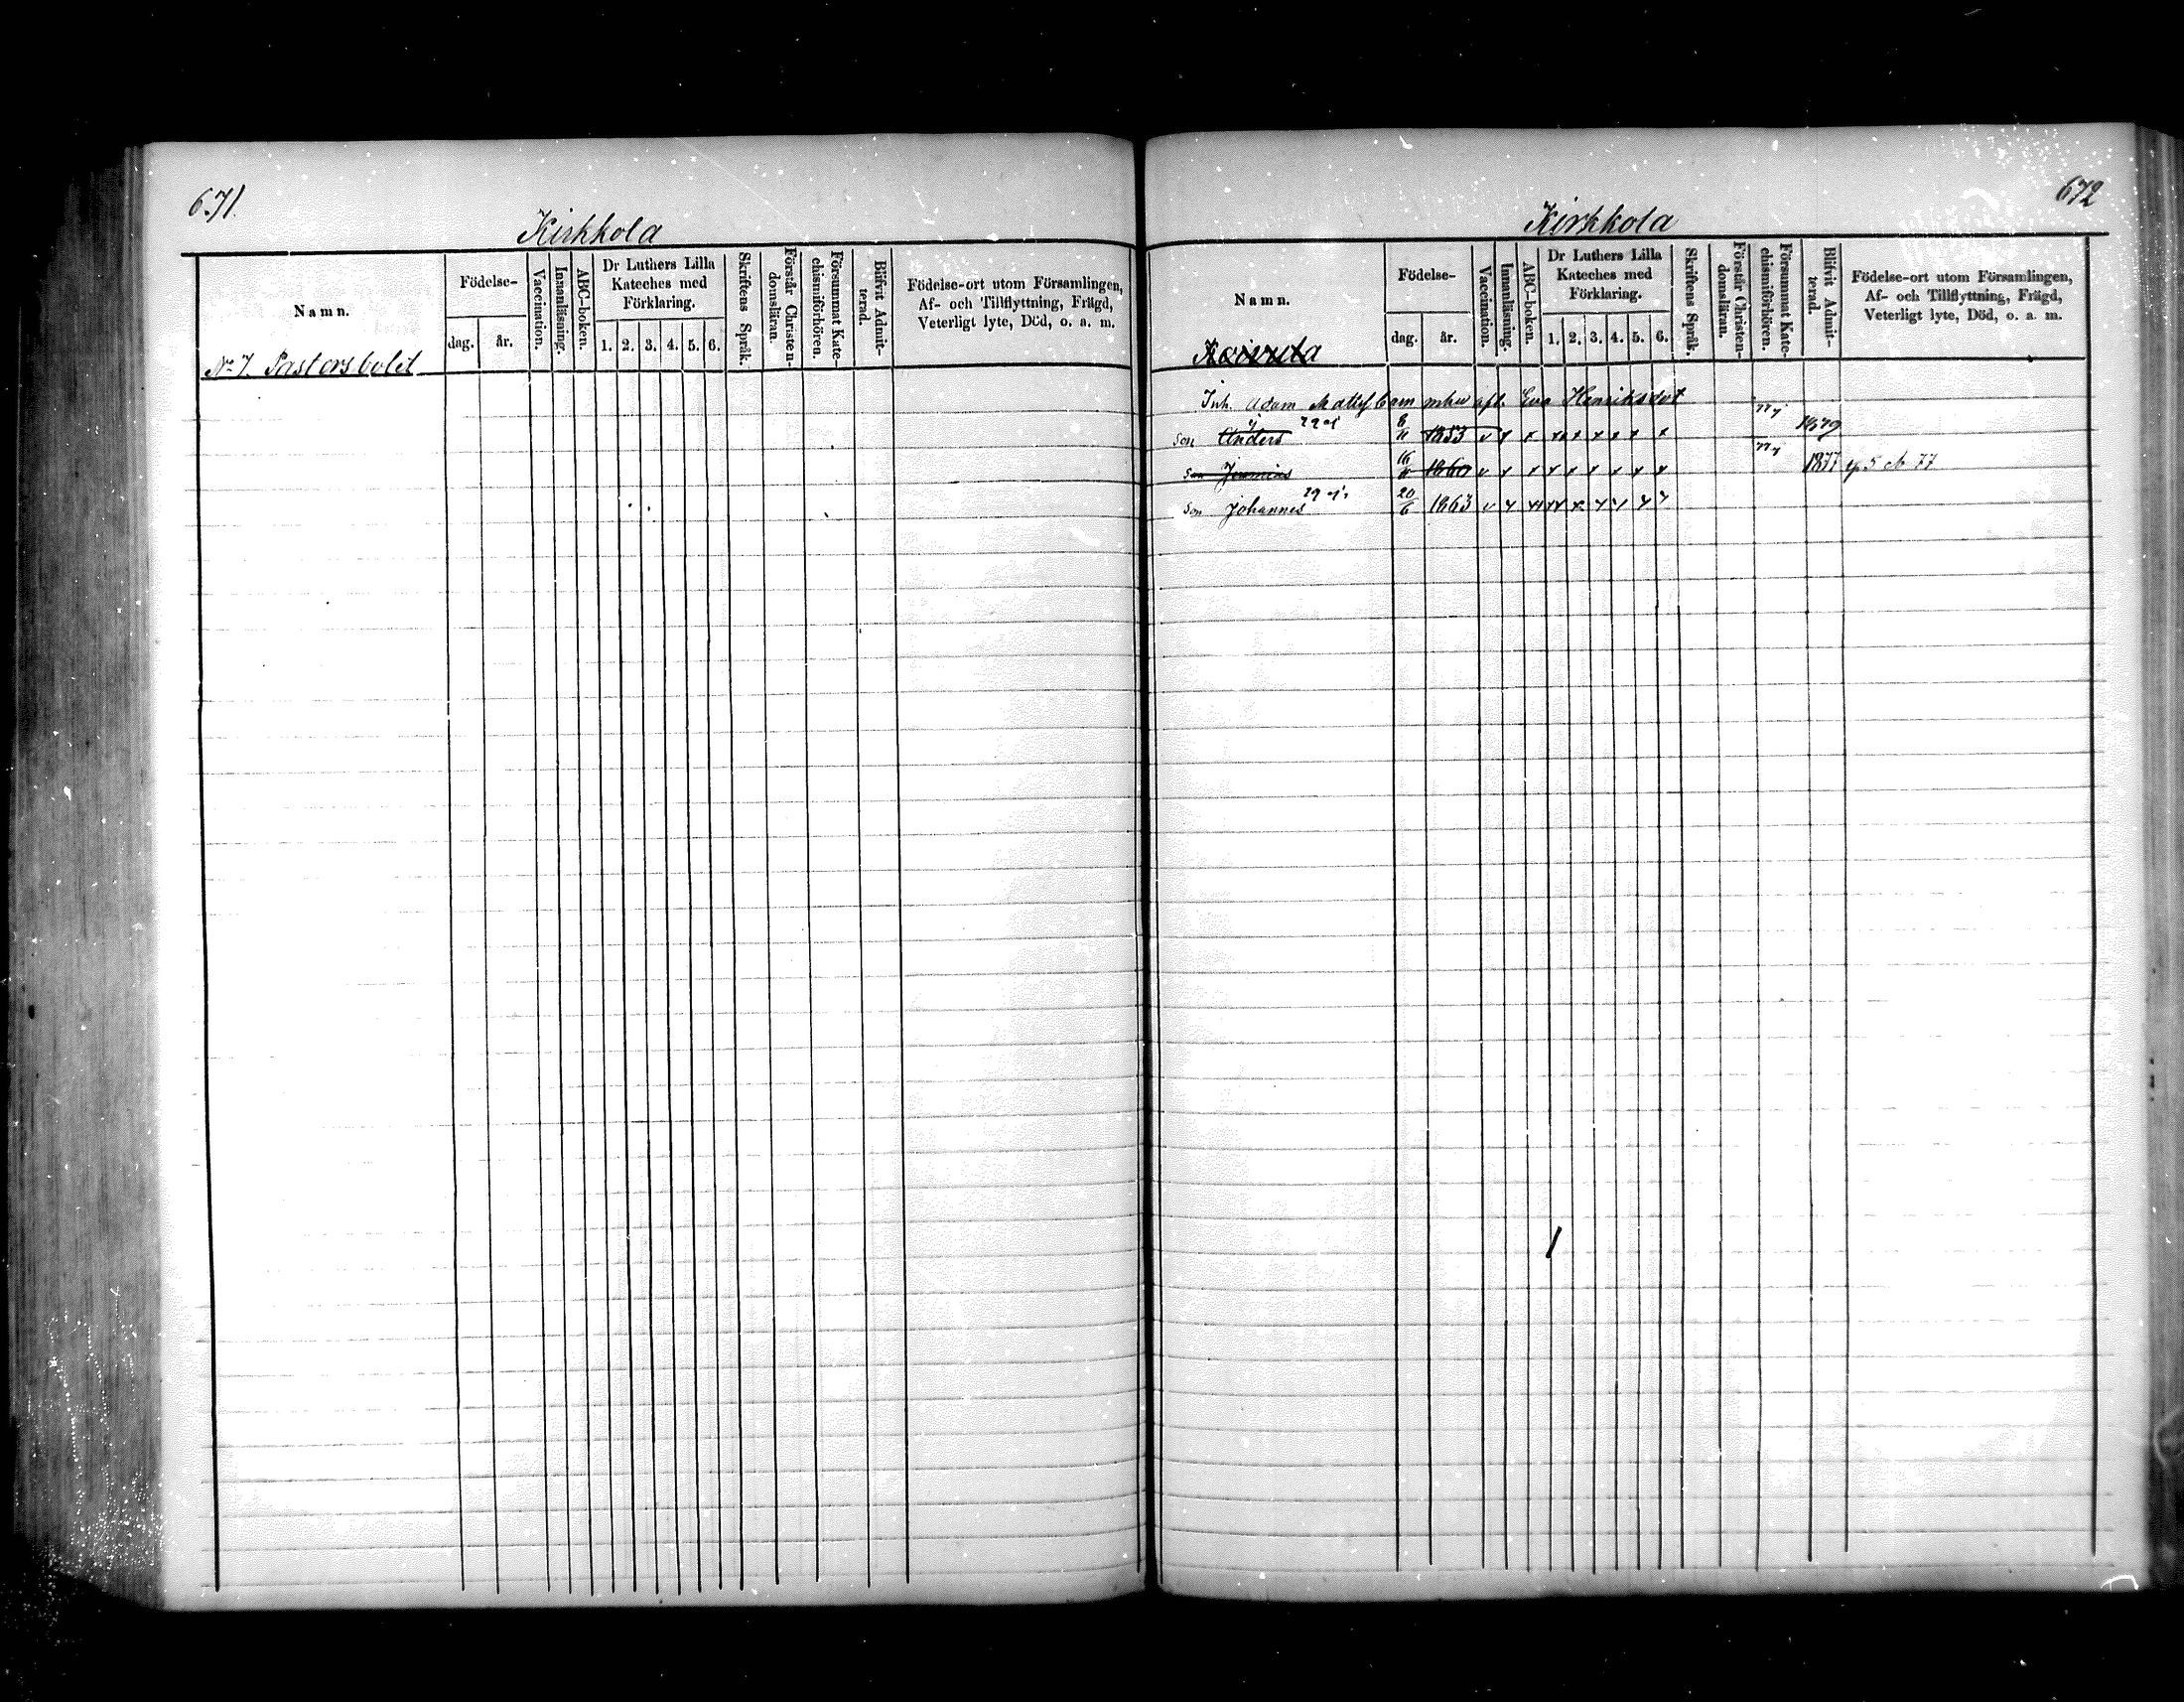 671.
Kirkkola
Namn.
Födelse-
dag. år.
Vaccination.
Innanläsning.
ABC-boken.
Dr Luthers Lilla
Kateches med
Förklaring.
1. 2. 3. 4. 5. 6.
Skriftens Språk.
Förstår Christen-
domsläran.
Försummat Kate-
chismiförhören.
Blifvit Admit-
terad.
Födelse-ort utom Församlingen,
Af- och Tillflyttning, Frägd,
Veterligt lyte, Död, o. a. m.
No 7. Pastorsbolet
672
Kirkkola
Namn.
Födelse-
dag. år.
Vaccination.
Innanläsning.
ABC-boken.
Dr Luthers Lilla
Kateches med
Förklaring.
1. 2. 3. 4. 5. 6.
Skriftens Språk.
Förstår Christen-
domsläran.
Försummat Kate-
chismiförhören.
Blifvit Admit-
terad.
Födelse-ort utom Församlingen,
Af- och Tillflyttning, Frägd,
Veterligt lyte, Död, o. a. m.
Inh. Adam Eva Henriksdot
son Anders 6/11 1853 v x x xx x x x x x 1879
son 16 1860 v x x x x x x x x 1877 77
son Johannes 20/6 1863